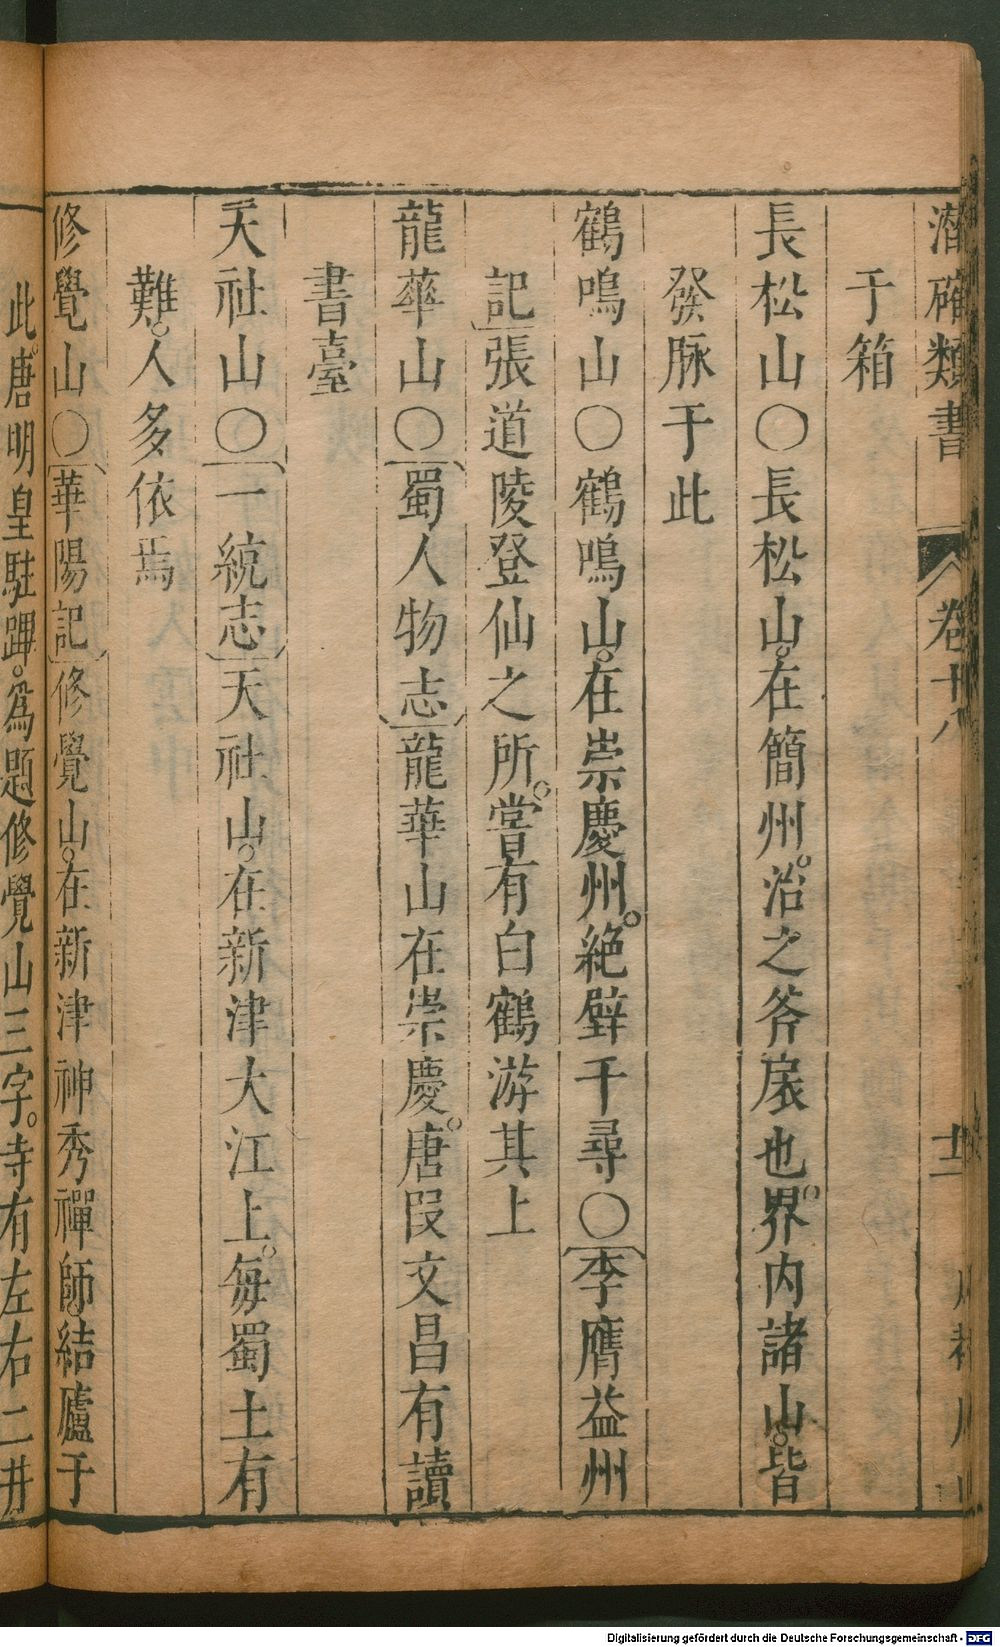 潛確類書 卷十八 廿二
于箱
長松山○長松山。在簡州。治之斧扆也。界内諸山。皆
發脉于此
鶴鳴山○鶴鳴山。在崇慶州。絶壁千尋○李膺益州
記張道陵登仙之所。嘗有白鶴游其上
龍華山○蜀人物志龍華山在崇慶。唐段文昌有讀
書臺
天社山○一統志天社山。在新津大江上。每蜀土有
難。人多依焉
修覺山○華陽記修覺山。在新津神秀禪師。結廬于
此。唐明皇駐蹕。爲題修覺山三字。寺有左右二井
Digitalisierung gefördert durch die Deutsche Forschungsgemeinschaft - DFG